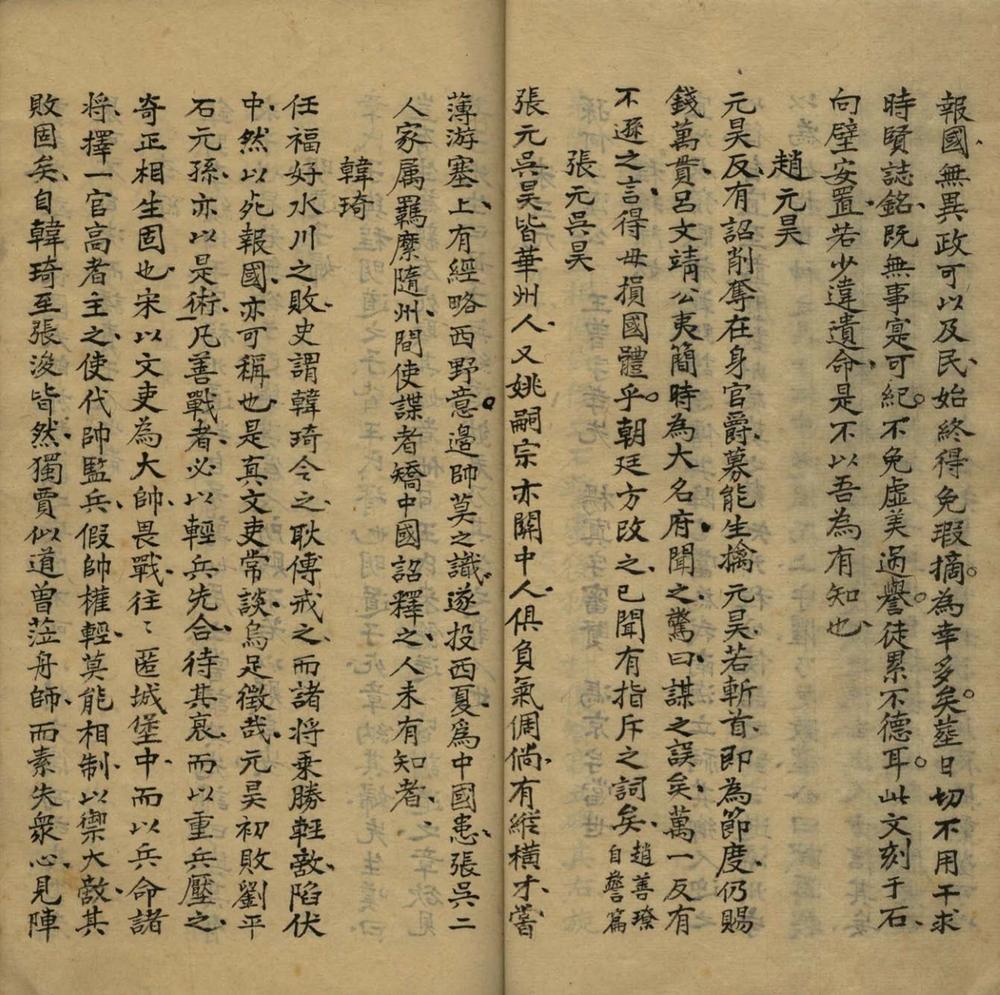 報國無異政可以及民始終得免瑕摘為幸多矣塟日切不用干求
時賢誌銘既無事寔可紀不免虛美過譽徒累不德耳此文刻于石
向壁安置若少違遺命是不以吾為有知也
趙元昊
元昊反有詔削奪在身官爵募能生擒元昊若斬首即為節度仍賜
錢萬貫呂文靖公夷簡時為大名府聞之驚曰謀之誤矣萬一反有
不遜之言得毋損國體乎朝廷方改之已聞有指斥之詞矣趙善璙自警篇
張元吳昊
張元吳昊皆華州人又姚嗣宗亦關中人俱負氣倜儻有縱橫才嘗
薄游塞上有經略西野意邊帥莫之識遂投西夏爲中國患張吳二
人家屬羈縻隨州間使諜者矯中國詔釋之人未有知者
韓琦
任福好水川之敗史謂韓琦令之耿傅戒之而諸将乘勝輕敵陷伏
中然以死報國亦可稱也是真文吏常談烏足徵哉元昊初敗劉平
石元孫亦以是術凡善戰者必以輕兵先合待其衰而以重兵壓之
奇正相生固也宋以文吏為大帥畏戰往〻匿城堡中而以兵命諸
将擇一官高者主之使代帥監兵假帥權輕莫能相制以禦大敵其
敗固矣自韓琦至張浚皆然獨賈似道曾蒞舟師而素失衆心見陣